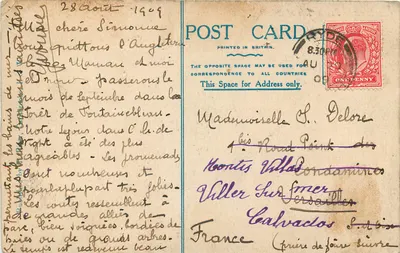 28 Août 1909
chère Simonne
quittons l'Angleterre
Maman et moi
passerons le
mois de septembre dans la
forêt de Fontainebleau
notre séjour dans l'île de
a été des plus
agréables. Les promenades
sont nombreuses et
plus très jolies.
Les routes ressemblent à
de grandes allées de
parc, bien soignées, bordées de
haies ou de grands arbres.
temps est redevenu beau
POST CARD
PRINTED IN BRITAIN.
THE OPPOSITE SPACE MAY BE USED FOR
CORRESPONDENCE TO ALL COUNTRIES
This Space for Address only.
RYDE
8.30PM
AU
09
ONE PENNY
Mademoiselle S. Delore
4 bis Rond Point du
Montis Villa
Condamines
Villers Sur mer
Versailles
Calvados
France
(prière de faire suivre